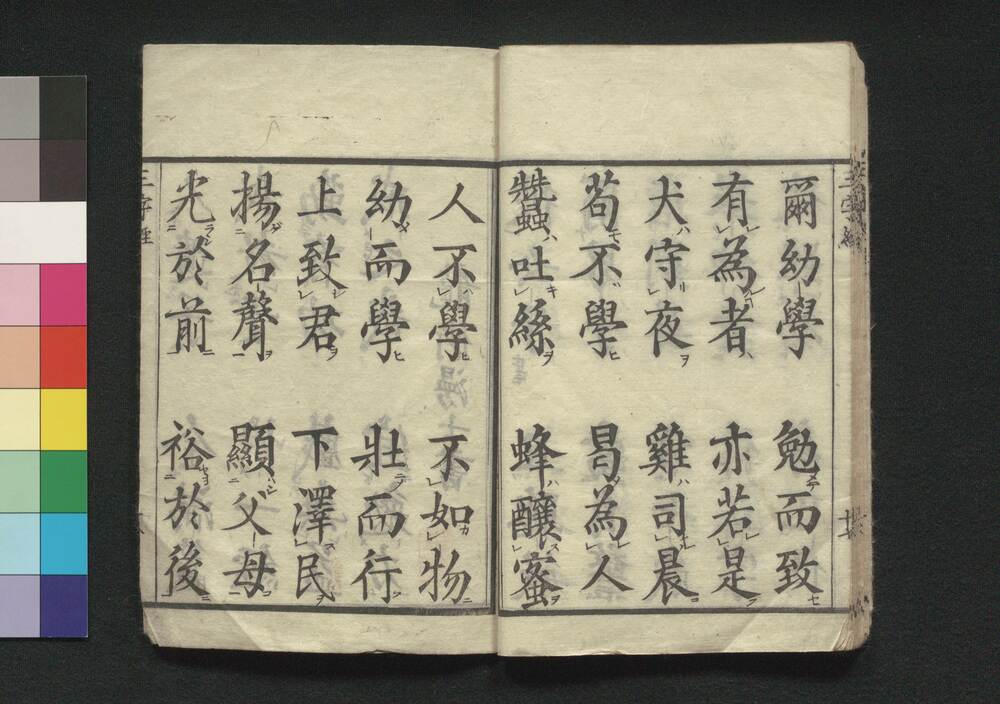 爾幼學 勉而致
有為者 亦若是
犬守夜 雞司晨
茍不學 曷為人
蠶吐絲 蜂釀蜜
人不學 不如物
幼而學 壯而行
上致君 下澤民
揚名聲 顯父母
光於前 裕於後
三字經